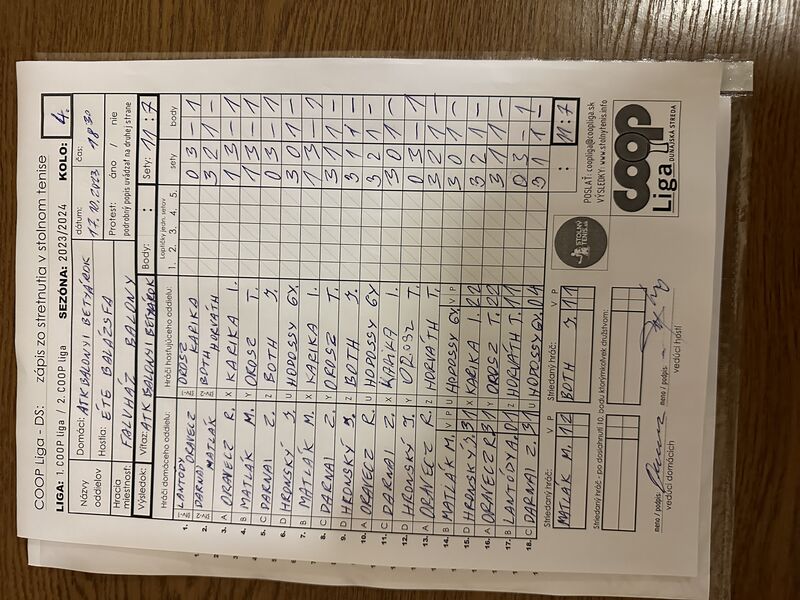 COOP Liga - DS: zápis zo stretnutia v stolnom tenise
LIGA: 1. COOP liga / 2. COOP liga SEZÓNA: 2023/2024 KOLO: 4.
Názvy oddielov
Domáci: ATK BALONYI BETYÁROK
Hostia: ÉTE BALÁZSFA
dátum: 17.10.2023
čas: 18 30
Hracia miestnosť: FALUHÁZ BALONY
Protest: áno / nie
podrobný popis uvádzať na druhej strane
Výsledok: Víťaz: ATK BALONYI BETYÁROK Body: : Sety: 11:7
Hráči domáceho oddielu: Hráči hosťujúceho oddielu: Loptičky jedn. setov sety body
1. 2. 3. 4. 5.
1. LANTODY ORAVECZ OROSZ KARIKA 0 3 - 1
2. DARNAI MATLÁK BOTH HORVÁTH 3 2 1 -
3. A ORAVECZ R. X KARIKA I. 1 3 - 1
4. B MATLÁK M. Y OROSZ T. 1 3 - 1
5. C DARNAI Z. Z BOTH J. 0 3 - 1
6. D HRONSKÝ J. U HODOSSY GY. 3 1 1 -
7. B MATLÁK M. X KARIKA I. 1 3 -
8. C DARNAI Z. Y OROSZ T. 3 0 1 -
9. D HRONSKÝ J. Z BOTH J. 3 1 1 -
10. A ORAVECZ R. U HODOSSY GY 3 2 1 -
11. C DARNAI Z. X KARIKA I. 3 0 1 -
12. D HRONSKÝ J. Y OROSZ T. 0 3 - 1
13. A ORAVECZ R. Z HORVÁTH T. 3 2 1 -
14. B MATLÁK M. V P U HODOSSY GY. V P 3 0 1 -
15. D HRONSKÝ J. 3 1 X KARIKA I. 2 2 3 1 1 -
16. A ORAVECZ R. 3 1 Y OROSZ T. 2 2 3 2 1 -
17. B LANTÓDY A. 0 1 Z HORVÁTH T. 1 1 0 3 - 1
18. C DARNAI Z. 3 1 U HODOSSY GY. 0 4 3 1 1 -
: 11:7
Striedaný hráč: V P
MATLÁK M. 1 2
Striedaný hráč: V P
BOTH J. 1 1
Striedaný hráč - po dosiahnutí 10. bodu ktorýmkoľvek družstvom:
meno / podpis
vedúci domácich
meno / podpis
vedúci hostí
STOLNÝ TENIS.sk
POSLAŤ: coopliga@coopliga.sk
VÝSLEDKY: www.stolnytenis.info
coop
Liga DUNAJSKÁ STREDA